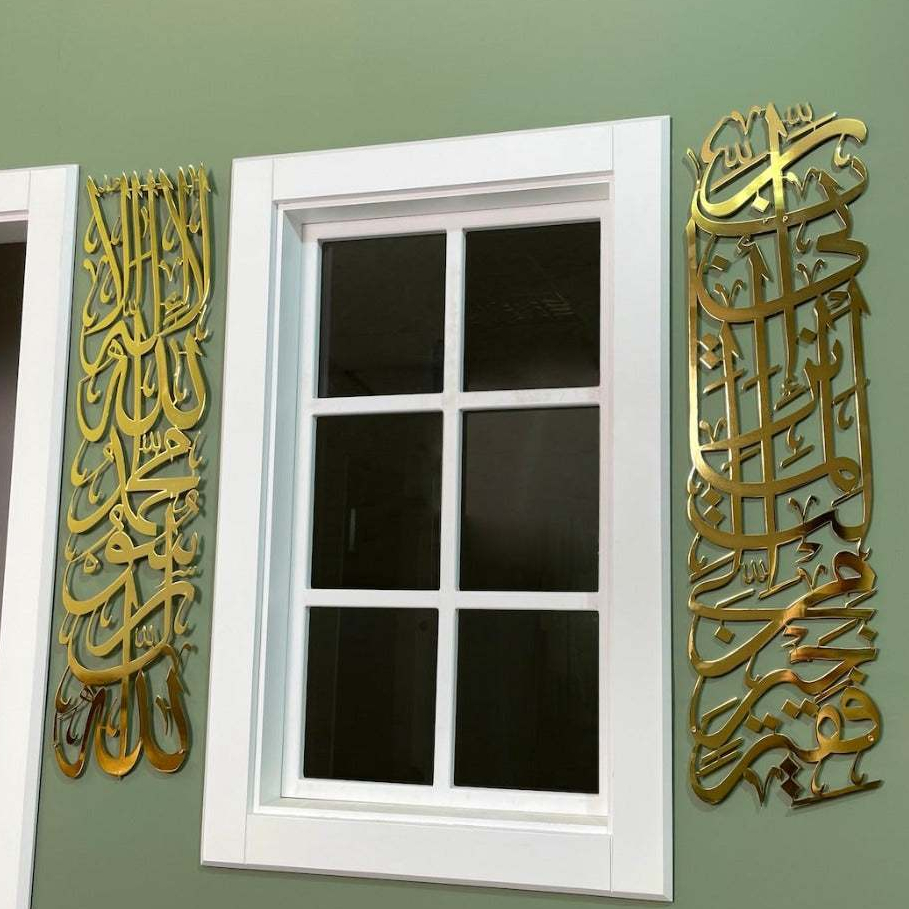 رب إني لما أنزلت إلي من خير فقير
لا إله إلا الله محمد رسول الله